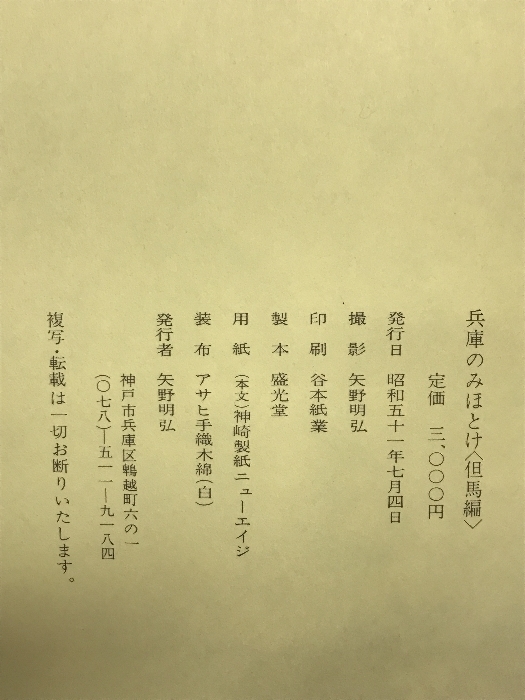 兵庫のみほとけ〈但馬編〉
定価 三、〇〇〇円
発行日 昭和五十一年七月四日
撮影 矢野明弘
印刷 谷本紙業
製本 盛光堂
用紙 (本文)神崎製紙ニューエイジ
装布 アサヒ手織木綿(白)
発行者 矢野明弘
神戸市兵庫区鵯越町六の一
(〇七八)―五一一―九一八四
複写・転載は一切お断りいたします。